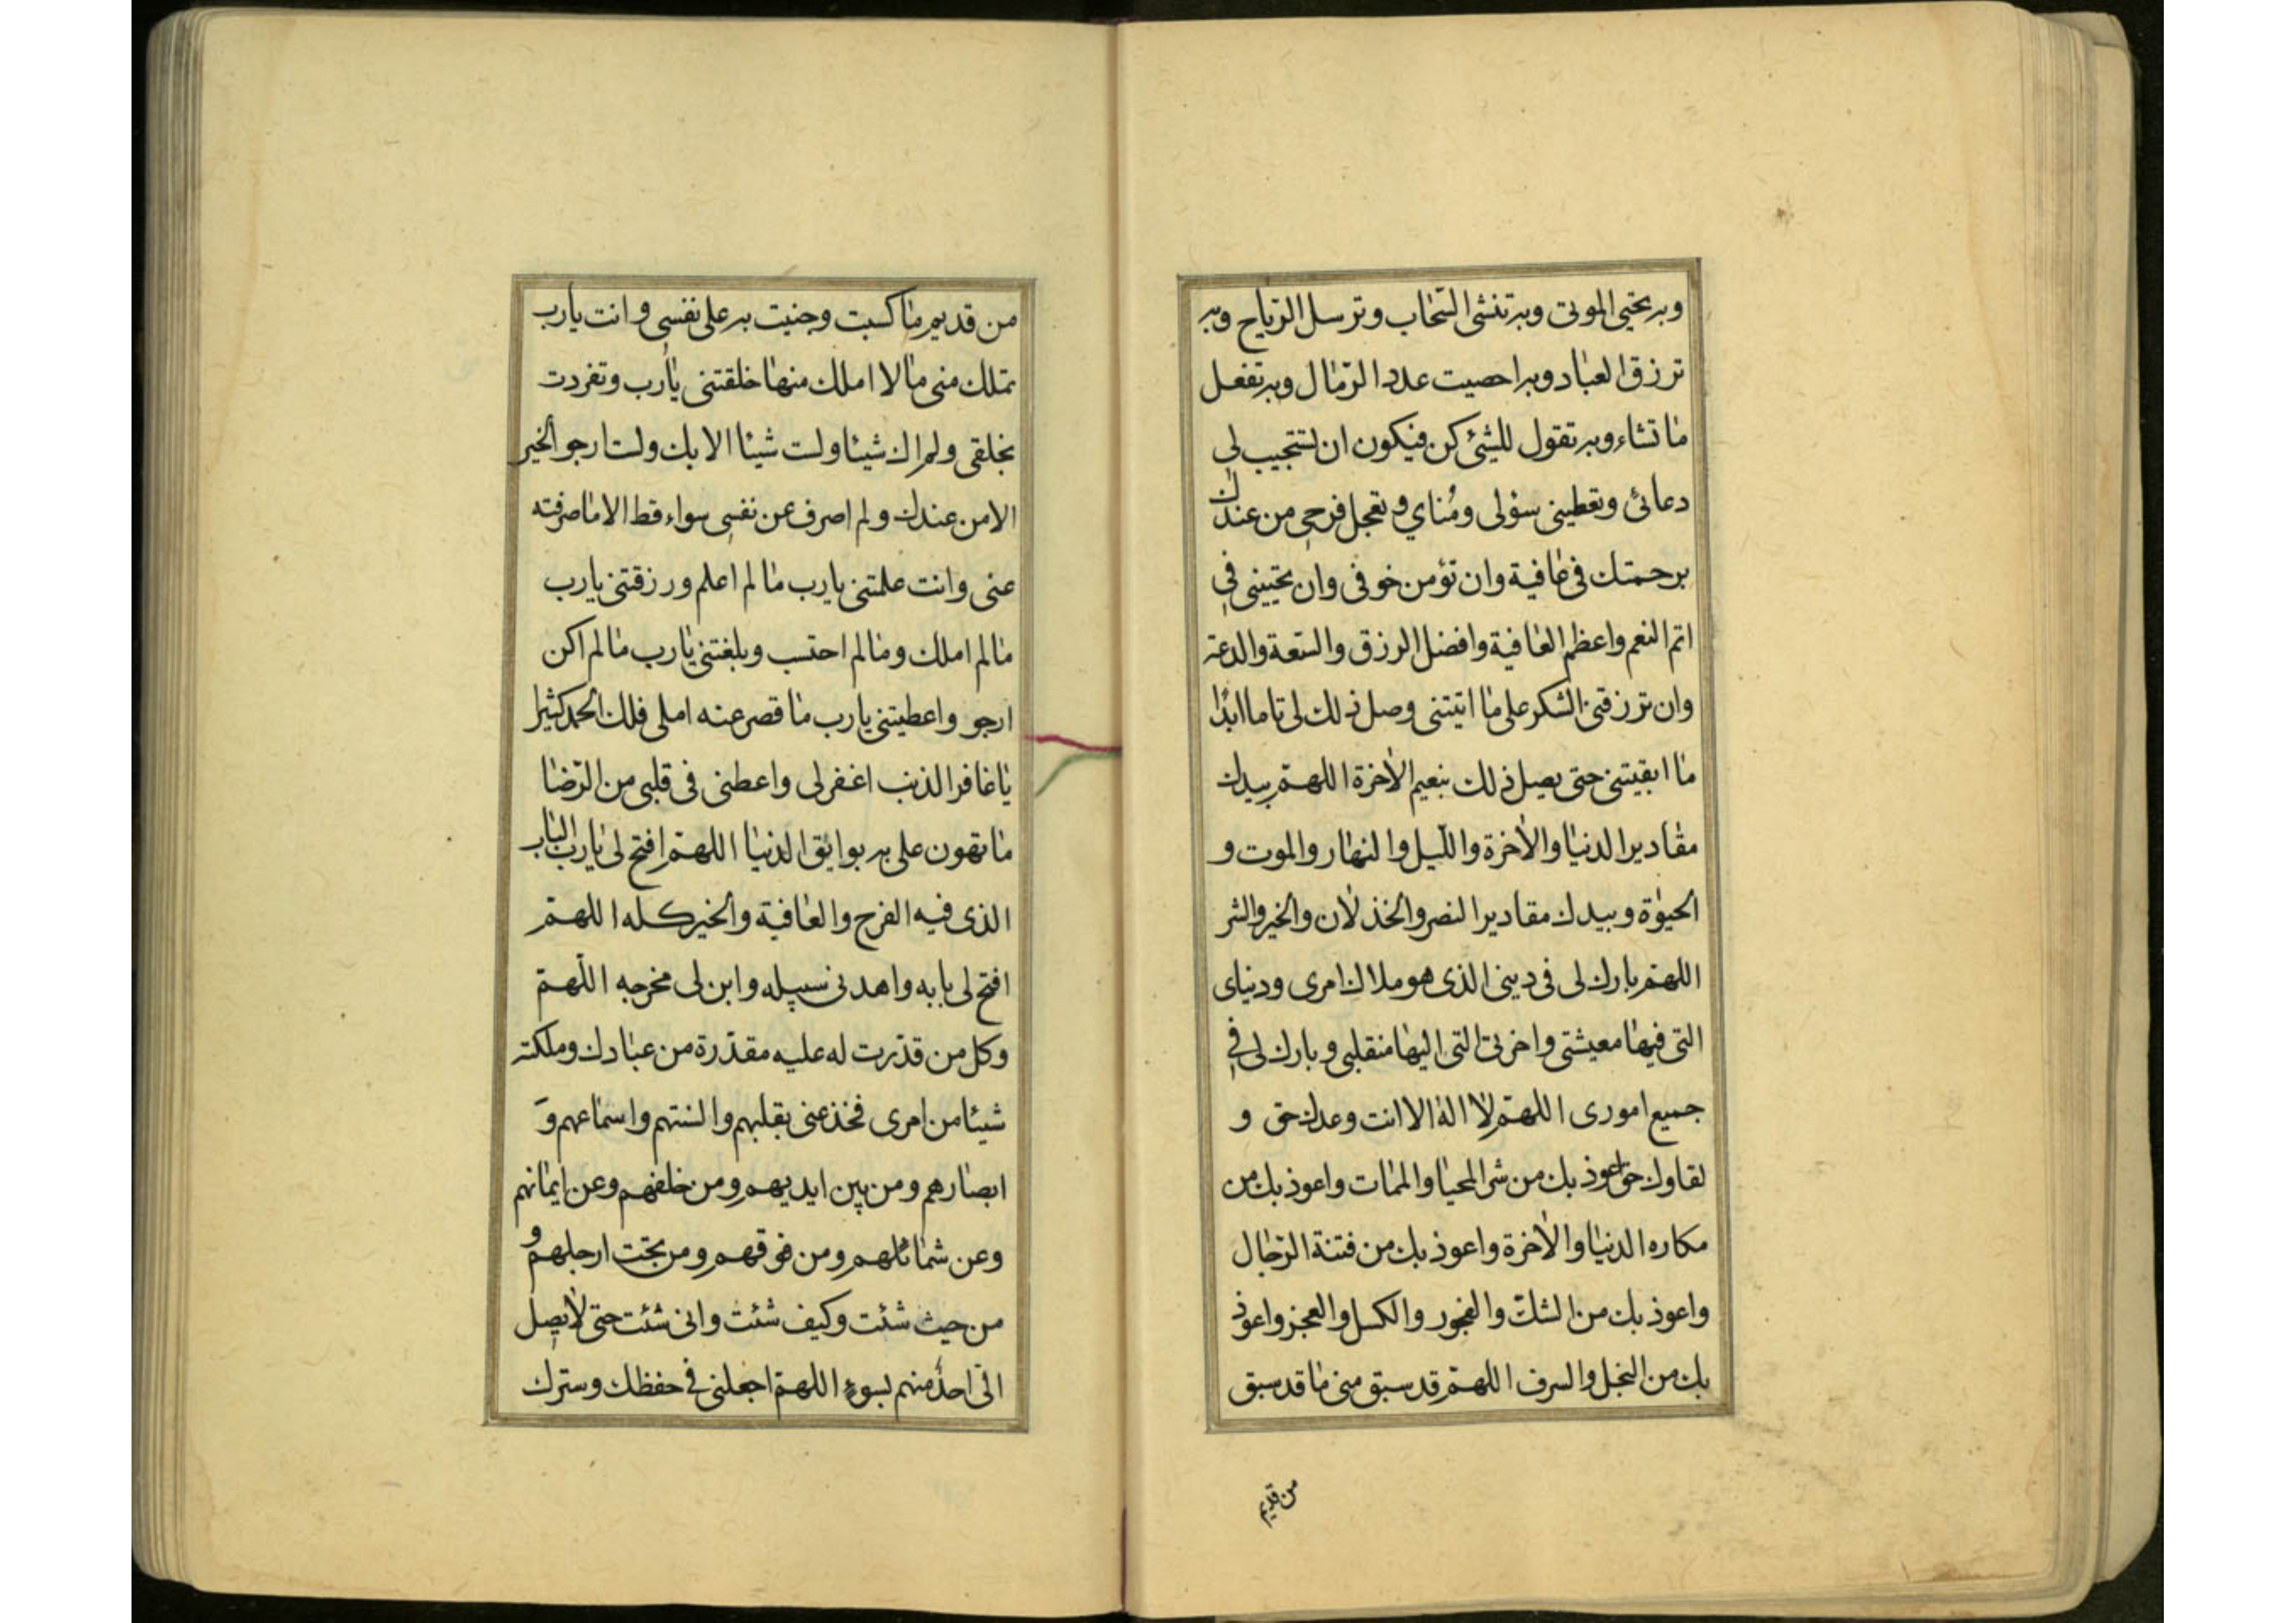 وبه تحيي الموتى وبه تنشئ السّحاب وترسل الرّياح وبه
ترزق العباد وبه احصيت عدد الرّمال وبه تفعل
ما تشاء وبه تقول للشئ كن فيكون ان تستجيب لي
دعائي وتعطيني سؤلى ومُناي و تعجل فرجي من عندك
برحمتك في عافية وان تؤمن خوفى وان تحييني في
اتم النعم واعظم العافية وافضل الرزق والسّعة والدعة
وان ترزقني الشكر على ما اتيتنى وصل ذلك لى تاما ابدًا
ما ابقيتني حتى يصل ذلك بنعيم الاخرة اللهمّ بيدك
مقادير الدنيا والاخرة والليل والنهار والموت و
الحيوة وبيدك مقادير النصر والخذلان والخير والشر
اللهمّ بارك لى فى دينى الذى هو ملاك امرى ودنياى
التى فيها معيشتى واخرتى التى اليها منقلبى وبارك لى في
جميع امورى اللهمّ لا اله الا انت وعدك حق و
لقاوك حق اعوذ بك من شر المحيا والممات واعوذ بك من
مكاره الدنيا والاخرة واعوذ بك من فتنة الدّجال
واعوذ بك من الشكّ والفجور والكسل والعجز واعوذ
بك من البخل والسرف اللهمّ قد سبق منى ما قد سبق
من قديم
من قديم ما كسبت وجنيت به على نفسي وانت يارب
تملك منى ما لا املك منها خلقتنى يارب وتفردت
بخلقى ولم اك شيئا ولست شيئا الا بك ولست ارجو الخير
الا من عندك ولم اصرف عن نفسي سواء قط الا ما صرفته
عنى وانت علمتنى يارب ما لم اعلم ورزقتنى يارب
ما لم املك وما لم احتسب وبلغتنى يارب ما لم اكن
ارجو واعطيتنى يارب ما قصر عنه املى فلك الحمد كثيرا
يا غافر الذنب اغفر لى واعطنى فى قلبى من الرّضا
ما تهون على به بوايق الدنيا اللهمّ افتح لى يارب الباب
الذى فيه الفرج والعافية والخير كله اللهمّ
افتح لى بابه واهدنى سبيله وابن لى مخرجه اللّهمّ
وكل من قدّرت له عليه مقدّرة من عبادك وملكته
شيئا من امرى فخذ عنى بقلبهم والسنتهم واسماعهم وَ
ابصارهم ومن بين ايديهم ومن خلفهم وعن ايمانهم
وعن شمائلهم ومن فوقهم ومن تحت ارجلهم و
من حيث شئت وكيف شئت وانى شئت حتى لا يصل
الىّ احدٌ منهم بسوءٍ اللهمّ اجعلنى في حفظك وسترك